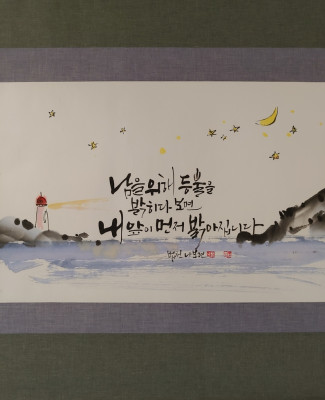 남을 위해 등불을
밝히다 보면
내 앞이 먼저 밝아집니다